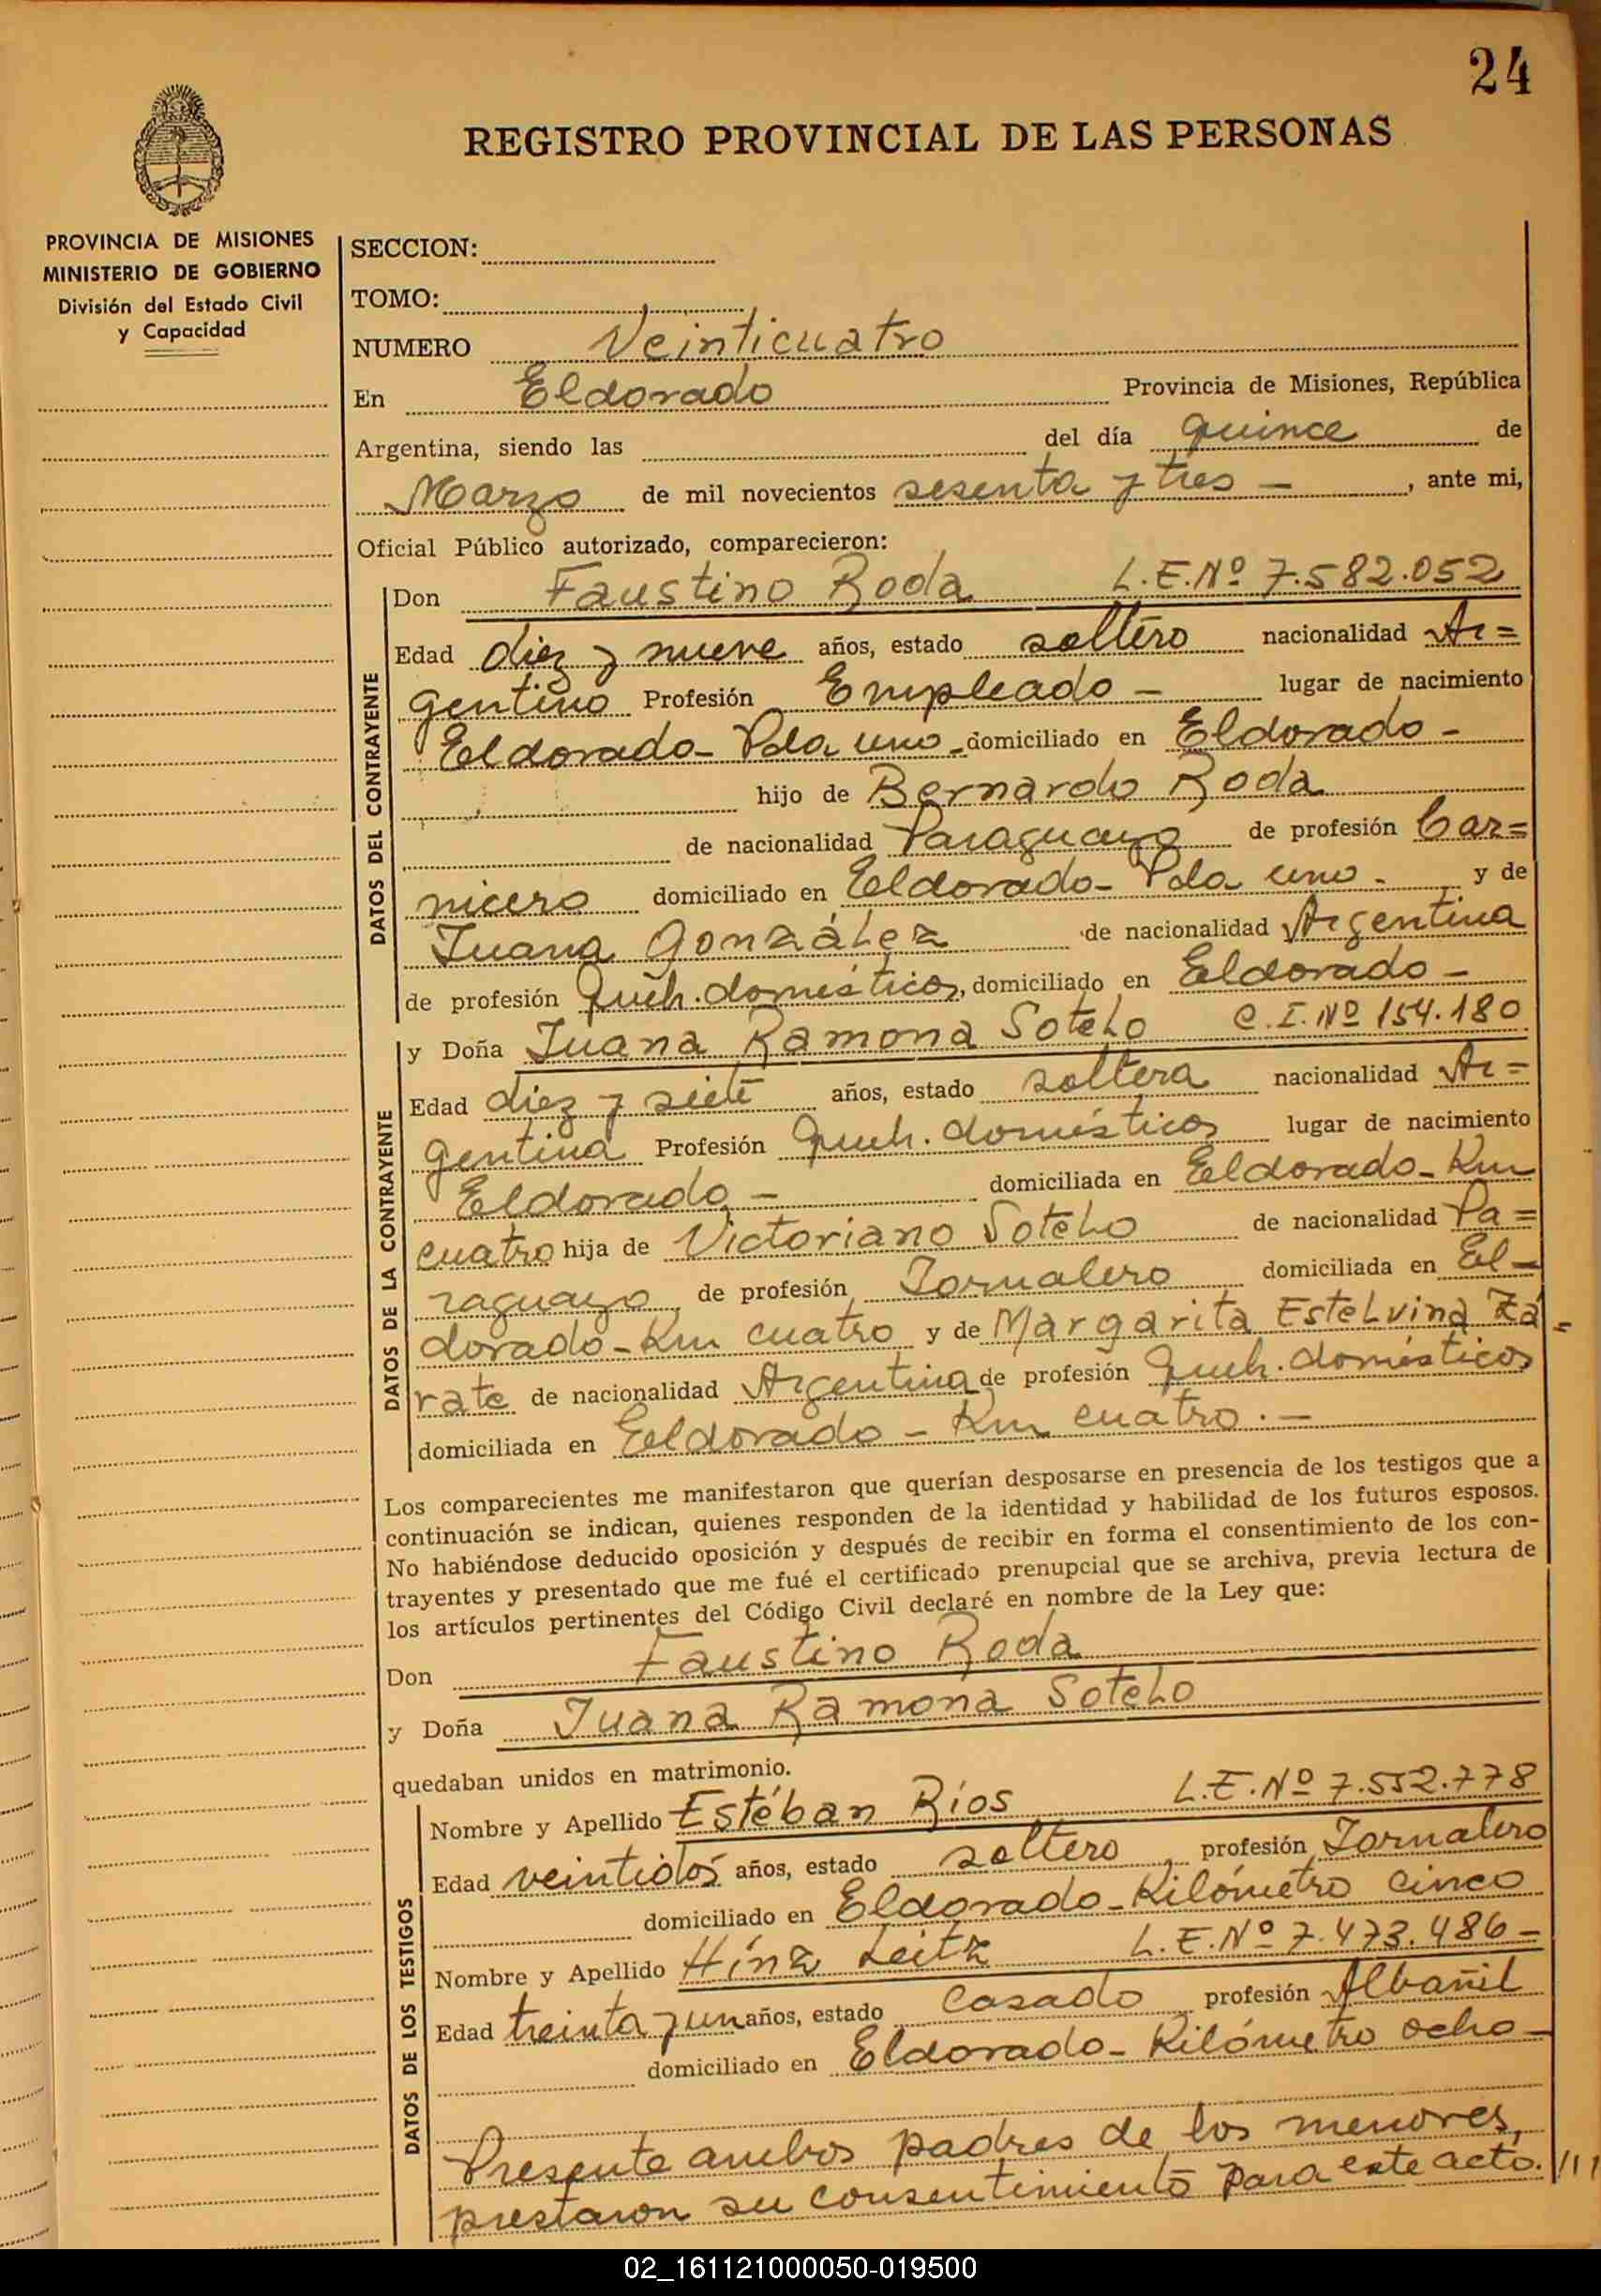 24
REGISTRO PROVINCIAL DE LAS PERSONAS
PROVINCIA DE MISIONES
MINISTERIO DE GOBIERNO
División del Estado Civil
y Capacidad
SECCION:
TOMO:
NUMERO Veinticuatro
En Eldorado Provincia de Misiones, República
Argentina, siendo las del día quince de
Marzo de mil novecientos sesenta y tres — , ante mi,
Oficial Público autorizado, comparecieron:
DATOS DEL CONTRAYENTE
Don Faustino Roda L.E.Nº 7.582.052
Edad diez y nueve años, estado soltero nacionalidad Ar=
gentino Profesión Empleado — lugar de nacimiento
Eldorado - Pda uno - domiciliado en Eldorado -
hijo de Bernardo Roda
de nacionalidad Paraguayo de profesión Car=
nicero domiciliado en Eldorado - Pda uno - y de
Juana González de nacionalidad Argentina
de profesión Queh. domésticos, domiciliado en Eldorado -
DATOS DE LA CONTRAYENTE
y Doña Juana Ramona Sotelo C.I.Nº 154.180
Edad diez y siete años, estado soltera nacionalidad Ar=
gentina Profesión Queh. domésticos lugar de nacimiento
Eldorado - domiciliada en Eldorado - Km
cuatro hija de Victoriano Sotelo de nacionalidad Pa=
raguayo de profesión Jornalero domiciliada en El-
dorado - Km cuatro y de Margarita Estelvina Zá=
rate de nacionalidad Argentina de profesión Queh. domésticos
domiciliada en Eldorado - Km cuatro. —
Los comparecientes me manifestaron que querían desposarse en presencia de los testigos que a
continuación se indican, quienes responden de la identidad y habilidad de los futuros esposos.
No habiéndose deducido oposición y después de recibir en forma el consentimiento de los con-
trayentes y presentado que me fué el certificado prenupcial que se archiva, previa lectura de
los artículos pertinentes del Código Civil declaré en nombre de la Ley que:
Don Faustino Roda
y Doña Juana Ramona Sotelo
quedaban unidos en matrimonio.
DATOS DE LOS TESTIGOS
Nombre y Apellido Estéban Ríos L.E.Nº 7.552.778
Edad veintidos años, estado soltero, profesión Jornalero
domiciliado en Eldorado - Kilómetro cinco
Nombre y Apellido Hínz Leitz L.E.Nº 7.473.486 -
Edad treinta y un años, estado casado profesión Albañil
domiciliado en Eldorado - Kilómetro ocho -
Presente ambos padres de los menores,
prestaron su consentimiento para este acto. ///
02_161121000050-019500